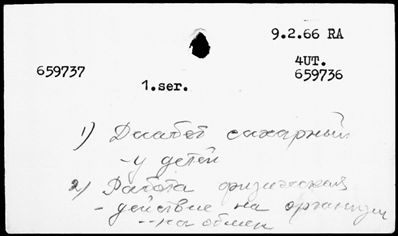 9.2.66 RA
4UT.
659737 659736
1.ser.
1) Диабет сахарный
- у детей
2) Работа физическая
- действие на организм
-- на обмен